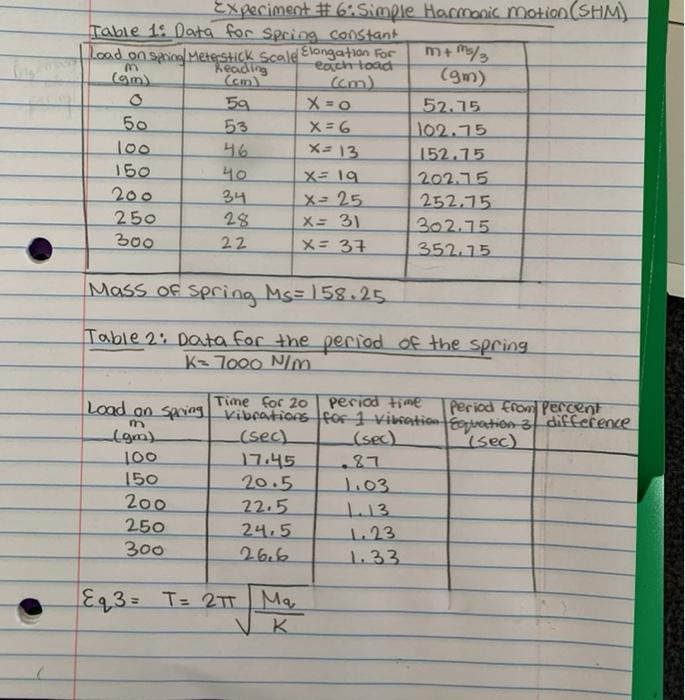 Experiment #6: Simple Harmonic motion (SHM)
Table 1: Data for Spring constant
Load on spring m (gm) | Meterstick Scale Reading (cm) | Elongation For each load (cm) | m + ms/3 (gm)
0 | 59 | x = 0 | 52.75
50 | 53 | x = 6 | 102.75
100 | 46 | x = 13 | 152.75
150 | 40 | x = 19 | 202.75
200 | 34 | x = 25 | 252.75
250 | 28 | x = 31 | 302.75
300 | 22 | x = 37 | 352.75
Mass of spring Ms = 158.25
Table 2: Data for the period of the spring
K = 7000 N/m
Load on spring m (gm) | Time for 20 vibrations (sec) | Period time for 1 vibration (sec) | Period from Equation 3 (sec) | Percent difference
100 | 17.45 | .87
150 | 20.5 | 1.03
200 | 22.5 | 1.13
250 | 24.5 | 1.23
300 | 26.6 | 1.33
Eq3 = T = 2π √(Ma/K)